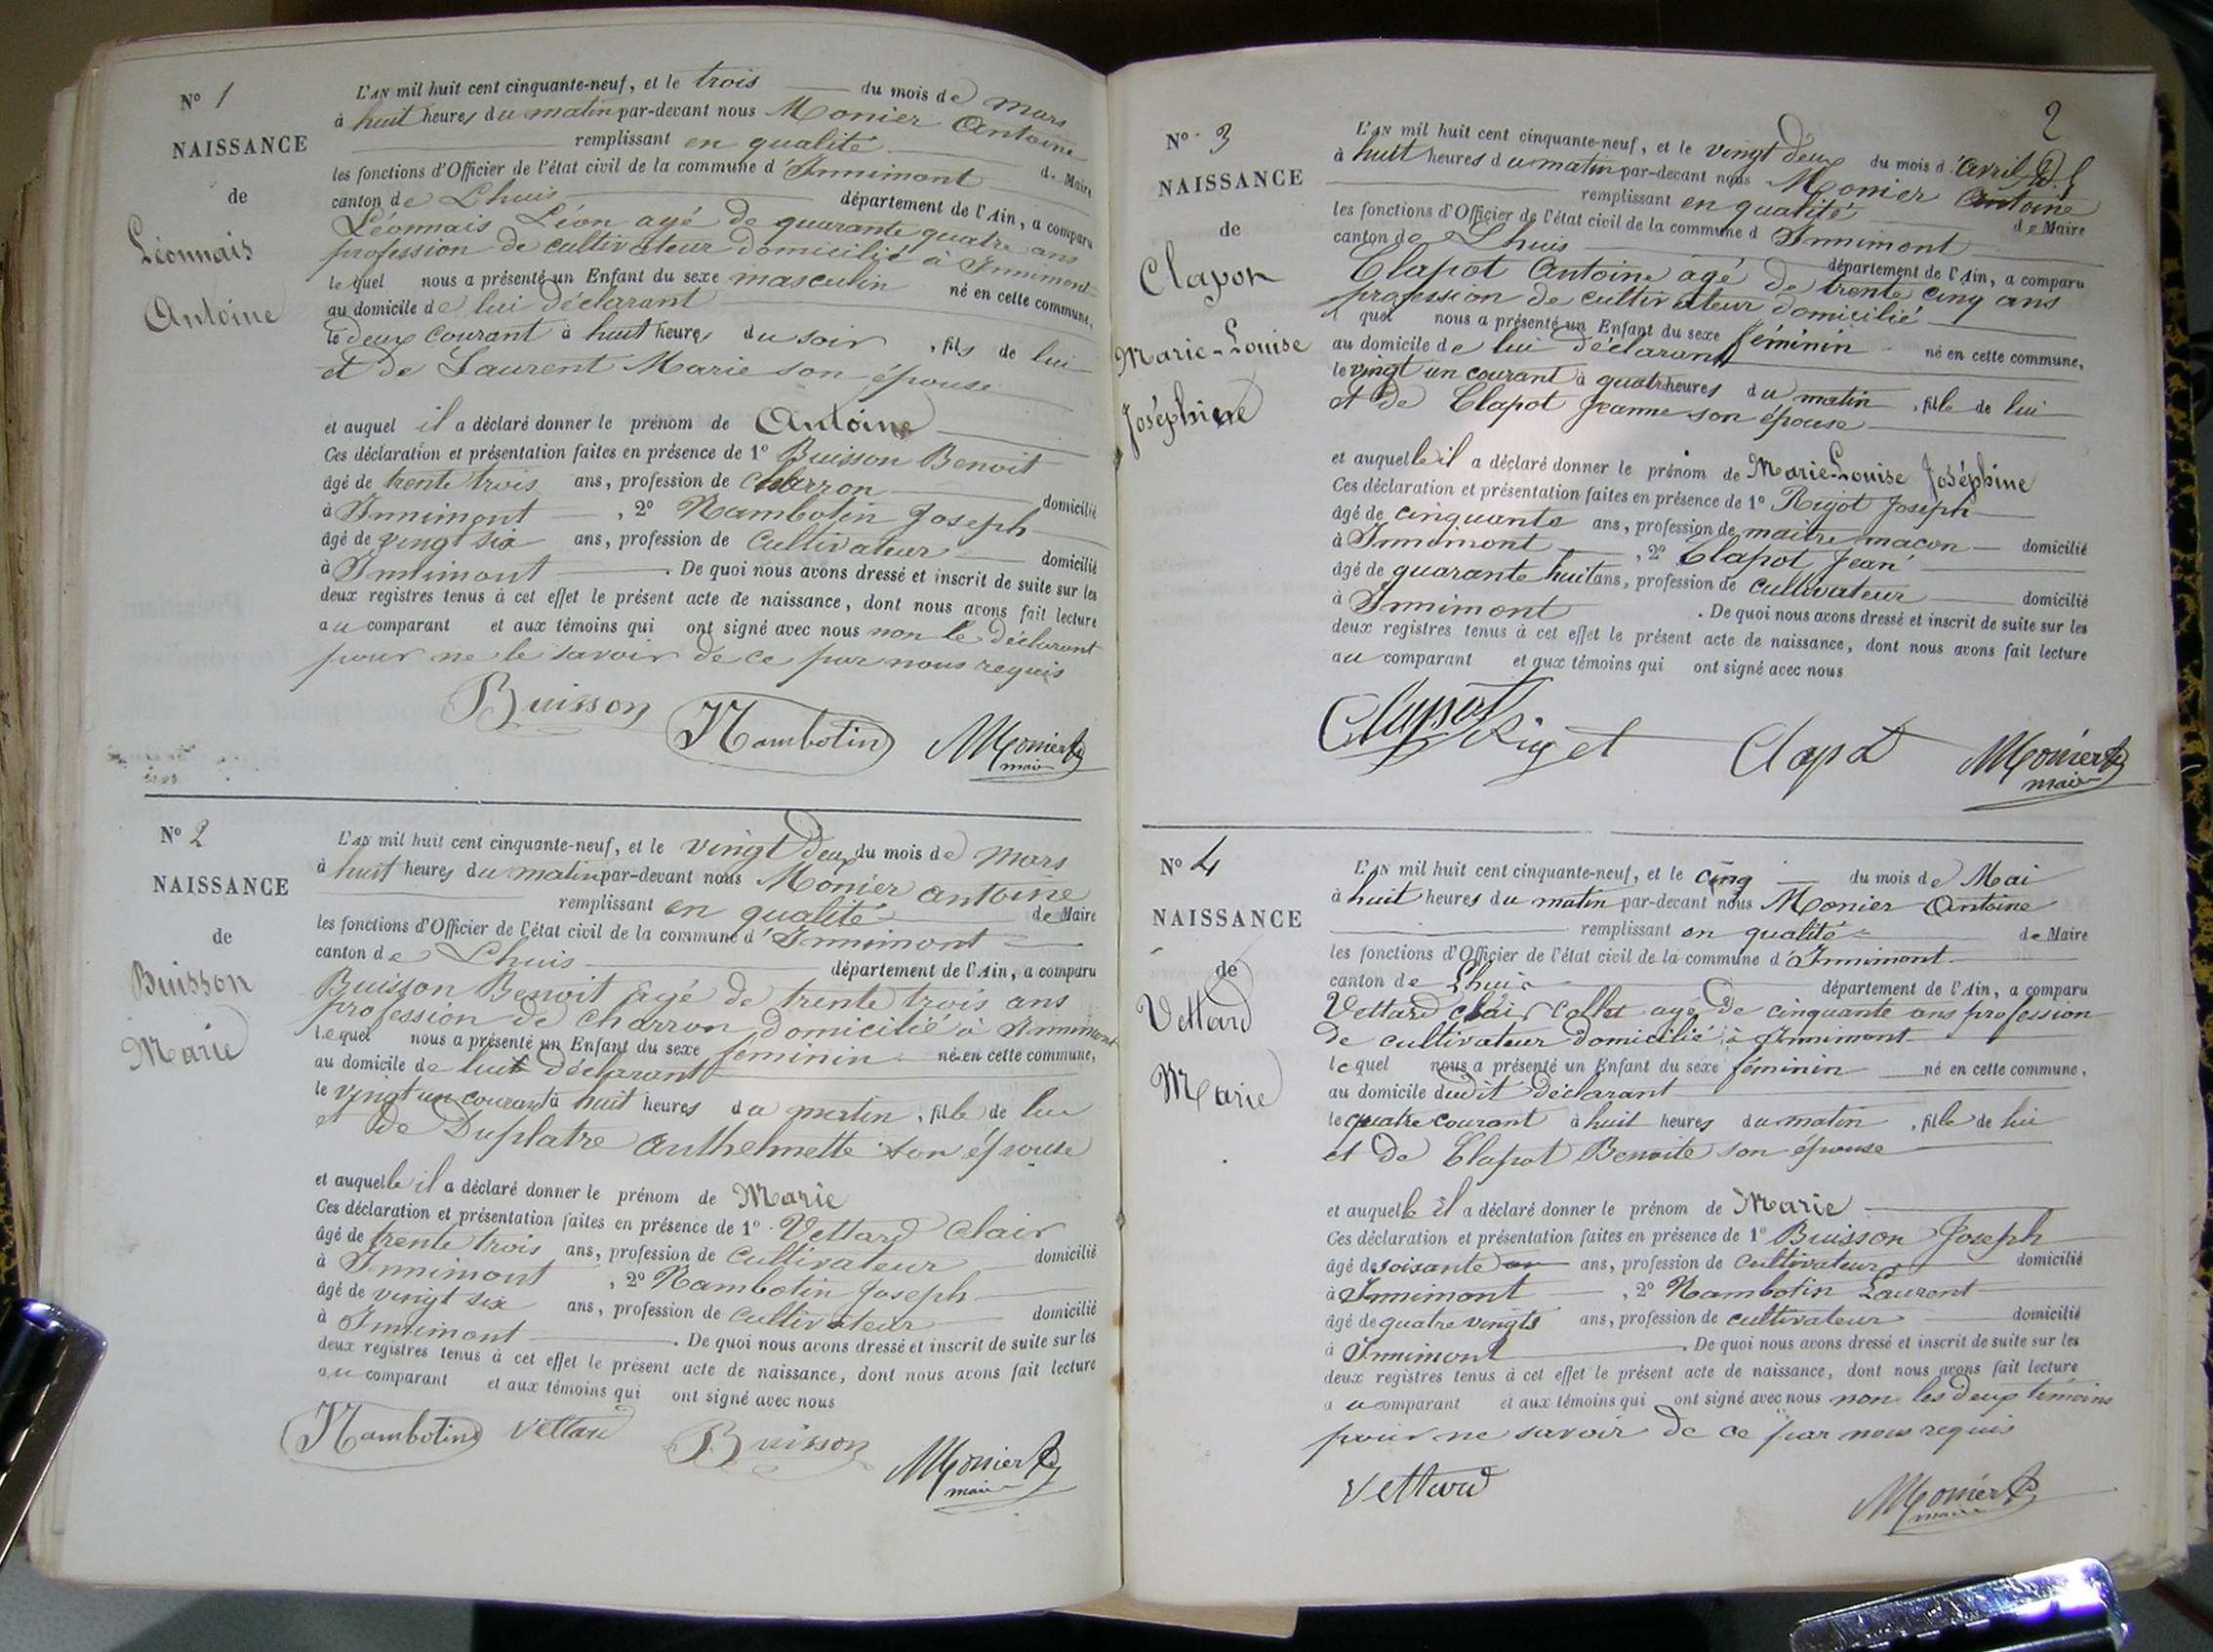 N° 1
NAISSANCE
de
Léonnais
Antoine
L'AN mil huit cent cinquante-neuf, et le trois du mois de Mars
à huit heures du matin par-devant nous Monier Antoine
remplissant en qualité de Maire
les fonctions d'Officier de l'état civil de la commune d'Innimont
canton de Lhuis département de l'Ain, a comparu
Léonnais Léon agé de quarante quatre ans
profession de cultivateur domicilié à Innimont
lequel nous a présenté un Enfant du sexe masculin né en cette commune,
au domicile de lui déclarant
le deux courant à huit heures du soir, fils de lui
et de Laurent Marie son épouse
et auquel il a déclaré donner le prénom de Antoine
Ces déclaration et présentation faites en présence de 1° Buisson Benoit
âgé de trente trois ans, profession de charron domicilié
à Innimont, 2° Nambotin Joseph
âgé de vingt six ans, profession de cultivateur domicilié
à Innimont. De quoi nous avons dressé et inscrit de suite sur les
deux registres tenus à cet effet le présent acte de naissance, dont nous avons fait lecture
au comparant et aux témoins qui ont signé avec nous non le déclarant
pour ne le savoir de ce par nous requis
Buisson Nambotin Monier
maire
N° 2
NAISSANCE
de
Buisson
Marie
L'AN mil huit cent cinquante-neuf, et le vingt deux du mois de Mars
à huit heures du matin par-devant nous Monier Antoine
remplissant en qualité de Maire
les fonctions d'Officier de l'état civil de la commune d'Innimont
canton de Lhuis département de l'Ain, a comparu
Buisson Benoit agé de trente trois ans
profession de charron domicilié à Innimont
lequel nous a présenté un Enfant du sexe féminin né en cette commune,
au domicile de lui déclarant
le vingt un courant à huit heures du matin, fille de lui
et de Duplatre Anthelmette son épouse
et auquelle il a déclaré donner le prénom de Marie
Ces déclaration et présentation faites en présence de 1° Vettard Clair
âgé de trente trois ans, profession de cultivateur domicilié
à Innimont, 2° Nambotin Joseph
âgé de vingt six ans, profession de cultivateur domicilié
à Innimont. De quoi nous avons dressé et inscrit de suite sur les
deux registres tenus à cet effet le présent acte de naissance, dont nous avons fait lecture
au comparant et aux témoins qui ont signé avec nous
Nambotin Vettard Buisson Monier
maire
2
N° 3
NAISSANCE
de
Clapon
Marie-Louise
Joséphine
L'AN mil huit cent cinquante-neuf, et le vingt deux du mois d'avril
à huit heures du matin par-devant nous Monier Antoine
remplissant en qualité de Maire
les fonctions d'Officier de l'état civil de la commune d Innimont
canton de Lhuis département de l'Ain, a comparu
Clapot Antoine agé de trente cinq ans
profession de cultivateur domicilié
quel nous a présenté un Enfant du sexe féminin né en cette commune,
au domicile de lui déclarant
le vingt un courant à quatre heures du matin, fille de lui
et de Clapot Jeanne son épouse
et auquelle il a déclaré donner le prénom de Marie-Louise Joséphine
Ces déclaration et présentation faites en présence de 1° Rigot Joseph
âgé de cinquante ans, profession de maitre macon domicilié
à Innimont, 2° Clapot Jean
âgé de quarante huit ans, profession de cultivateur domicilié
à Innimont. De quoi nous avons dressé et inscrit de suite sur les
deux registres tenus à cet effet le présent acte de naissance, dont nous avons fait lecture
au comparant et aux témoins qui ont signé avec nous
Clapot Rigot Clapot Monier
maire
N° 4
NAISSANCE
de
Vettard
Marie
L'AN mil huit cent cinquante-neuf, et le cinq du mois de Mai
à huit heures du matin par-devant nous Monier Antoine
remplissant en qualité de Maire
les fonctions d'Officier de l'état civil de la commune d'Innimont
canton de Lhuis département de l'Ain, a comparu
Vettard Clair Collet agé de cinquante ans profession
de cultivateur domicilié à Innimont
lequel nous a présenté un Enfant du sexe féminin né en cette commune,
au domicile dudit déclarant
le quatre courant à huit heures du matin, fille de lui
et de Clapot Benoite son épouse
et auquelle il a déclaré donner le prénom de Marie
Ces déclaration et présentation faites en présence de 1° Buisson Joseph
âgé de soisante ans, profession de cultivateur domicilié
à Innimont, 2° Nambotin Laurent
âgé de quatre vingts ans, profession de cultivateur domicilié
à Innimont. De quoi nous avons dressé et inscrit de suite sur les
deux registres tenus à cet effet le présent acte de naissance, dont nous avons fait lecture
au comparant et aux témoins qui ont signé avec nous non les deux témoins
pour ne savoir de ce par nous requis
Vettard Monier
maire